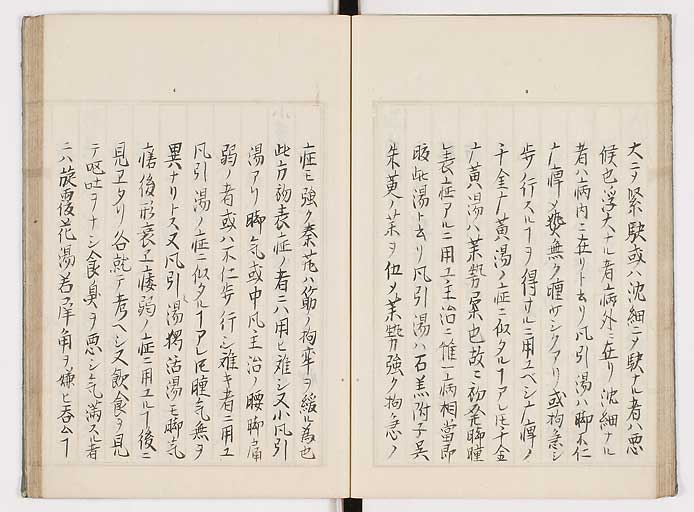 大ニ〆緊駃或ハ沈細ニ〆駃ナル者ハ悪
候也浮大ナル者ハ病外ニ在リ沈細ナル
者ハ病内ニ在リト云リ凡引湯ハ脚不仁
痺〆無ク痛ツシクアリ或拘急シ
歩ノ行スルヿヲ得サルニ用ユベシ痺ノ
千金广黄湯ノ症ニ似タルヿアレ𪜈千金
广黄湯ハ業勢属也故ニ初発脚腫
表症アルニ用ユ主治ニ惟一病相當即
此湯ト云リ凡引湯ハ石羔附子呉
朱萸ノ業ヲ伍〆業勢強ク拘急ノ
症ニ強ク秦艽ハ筋ノ拘牽ヲ緩ル為也
此方初表症ノ者ニハ用ヒ難シ又小凡引
湯アリ脚气或中凡主治ノ腰脚扁
弱ノ者或ハ不仁歩行シ難キ者ニ用ユ
凡引湯ノ症ニ似タルヿアレ𪜈腫气無ヲ
異ナリトス又凡引湯獨活湯モ脚气
痛後形衰ヱ痿弱ノ症ニ用ユルヿ後ニ
見ヱタリ各就テ考ヘシ又飲食ヲ見
テ嘔吐ヲナシ食臭ヲ悪シ气満スル者
ニハ旋覆花湯若犀角ヲ嫌ヒ呑ムヿ